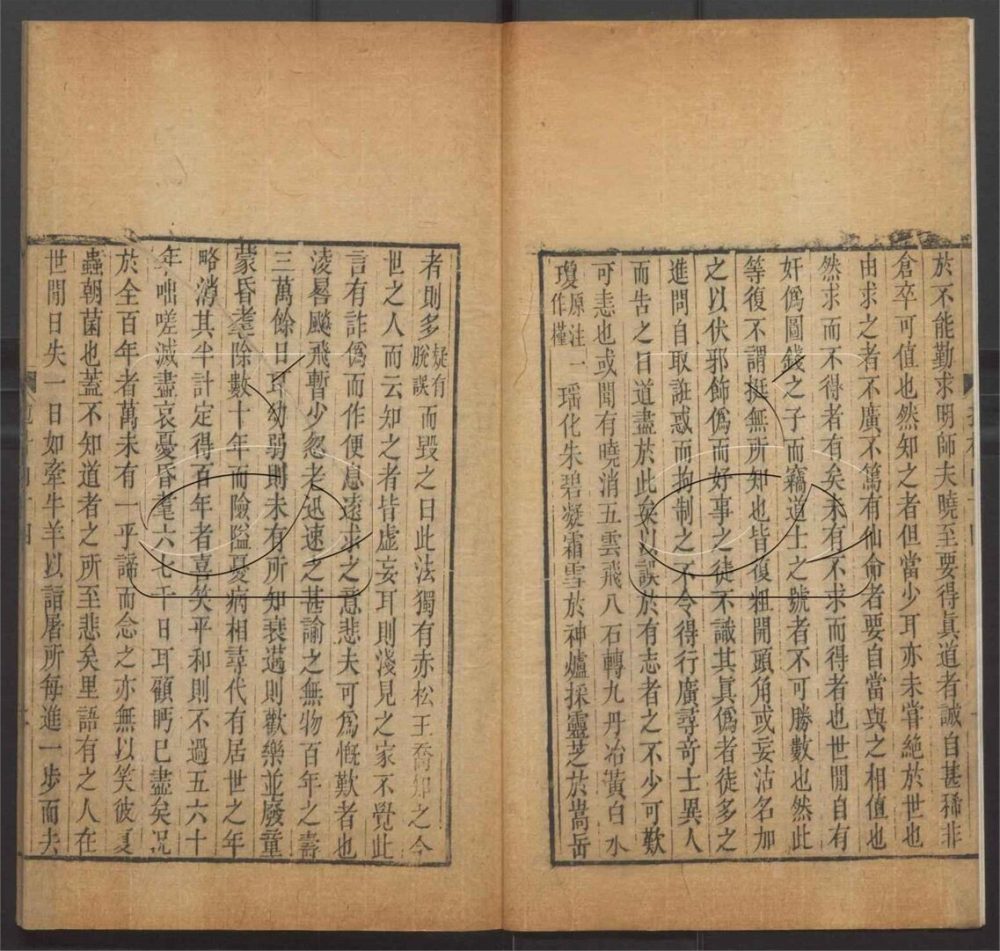 於不能勤求明師夫曉至要得眞道者誠自甚稀非
倉卒可值也然知之者但當少耳亦未嘗絕於世也
由求之者不廣不篤有仙命者要自當與之相值也
然求而不得者有矣未有不求而得者也世閒自有
奸僞圖錢之子而竊道士之號者不可勝數也然此
等復不謂挺無所知也皆復粗開頭角或妄沽名加
之以伏邪飾僞而好事之徒不識其眞僞者徒多之
進問自取誑惑而拘制之不令得行廣尋奇士異人
而告之曰道盡於此矣以誤於有志者之不少可歎
可恚也或聞有曉消五雲飛八石轉九丹冶黃白水
瓊原注作僅一瑶化朱碧凝霜雪於神爐採靈芝於嵩岳
者則多疑有脫誤而毀之曰此法獨有赤松王喬知之今
世之人而云知之者皆虛妄耳則淺見之家不覺此
言有詐僞而作便息遠求之意悲夫可爲慨歎者也
淩晷飈飛暫少忽老迅速之甚諭之無物百年之壽
三萬餘日耳幼弱則未有所知衰邁則歡樂並廢童
蒙昏耄除數十年而險隘憂病相尋代有居世之年
略消其半計定得百年者喜笑平和則不過五六十
年咄嗟滅盡哀憂昏耄六七千日耳顧眄已盡矣况
於全百年者萬未有一乎諦而念之亦無以笑彼夏
蟲朝菌也蓋不知道者之所至悲矣里語有之人在
世閒日失一日如牽牛羊以詣屠所每進一步而去